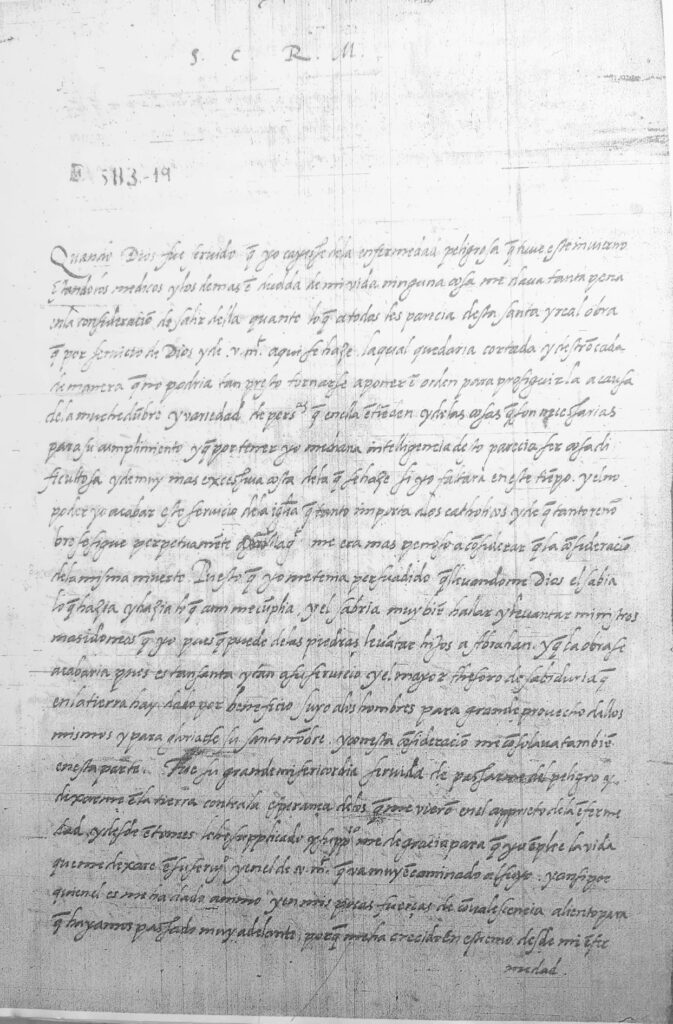 S. C. R. M.
5113-19
Quando Dios fue seruido q̃ yo cayesse de la enfermedad peligrosa q̃ tuue este inuierno
Estando los medicos y los demas ẽ dudda de mi vida ninguna cosa me daua tanta pena
en la consideraciõ de salir della quanto lo q̃ a todos les parecia desta santa y real obra
q̃ por seruicio de Dios y de .v.mt. aqui se haze, la qual quedaria cortada y destrõcada
de manera q̃ no podria tan presto tornarse a poner ẽ orden para proseguirla a causa
de la muchedũbre y variedad de pers.as q̃ en ella ẽtiẽden y de las cosas q̃ son necessarias
para su cumplimiento y q̃ por tener yo mediana intelligencia desto parecia ser cosa di
ficultosa y de muy mas excessiua costa de la q̃ se haze si yo faltara en este tiẽpo. y el no
poder yo acabar este seruicio de la igl̃ia q̃ tanto importa a los catholicos y de q̃ tanto renõ
bre se sigue perpetuamẽte me era mas penoso a cõsiderar q̃ la cõsideraciõ
de la misma muerte. Puesto q̃ yo me tenia persuadido q̃ lleuandome Dios el sabia
lo q̃ hazia y hazia lo q̃ a mi me cũplia, y el sabria muy biẽ hallar y leuantar ministros
mas idoneos q̃ yo pues q̃ puede de las piedras leuãtar hijos a Abrahan. y q̃ la obra se
acabaria pues es tan santa y tan a su seruicio y el mayor thesoro de sabiduria q̃
en la tierra hay dado por beneficio suyo a los hombres para grande prouecho dellos
mismos y para gloria de su santo nõbre. y con esta cõsideraciõ me cõsolaua tambiẽ
en esta parte. Fue su grande misericordia seruida de passarme del peligro y
dexarme ẽ la tierra contra la esperança de los q̃ me vierõ en el aprieto de la ẽferme
dad, y desde ẽtonces le he supplicado y supp.co me de gracia para q̃ yo ẽplee la vida
que me dexare ẽ su seruj.o y en el de .v.mt. q̃ va muy ẽcaminado al suyo. y ansi por
quien el es me ha dado animo y en mis pocas fuerças de cõualesencia aliento para
q̃ hayamos passado muy adelante, porq̃ me ha crecido en estremo desde mi ẽfer
medad